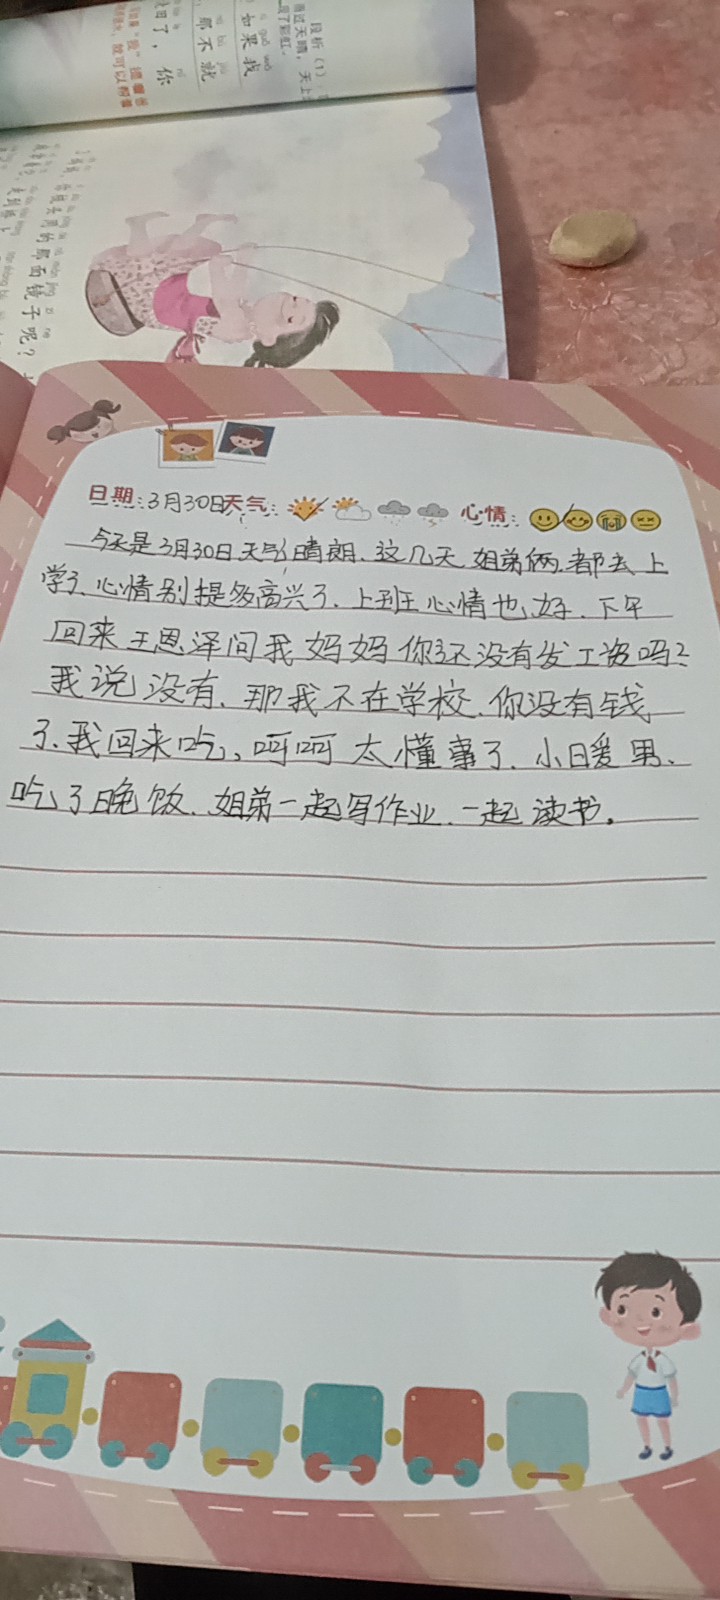 如果我
那不就
了，你
的那面镜子呢？
日期：3月30日天气： 心情：
今天是3月30日天气晴朗、这几天 姐弟俩、都去上
学了、心情别提多高兴了、上班心情也好、下午
回来王恩泽问我 妈妈 你还没有发工资吗？
我说没有、那我不在学校、你没有钱
了、我回来吃、呵呵 太懂事了、小暖男、
吃了晚饭、姐弟一起写作业、一起读书。